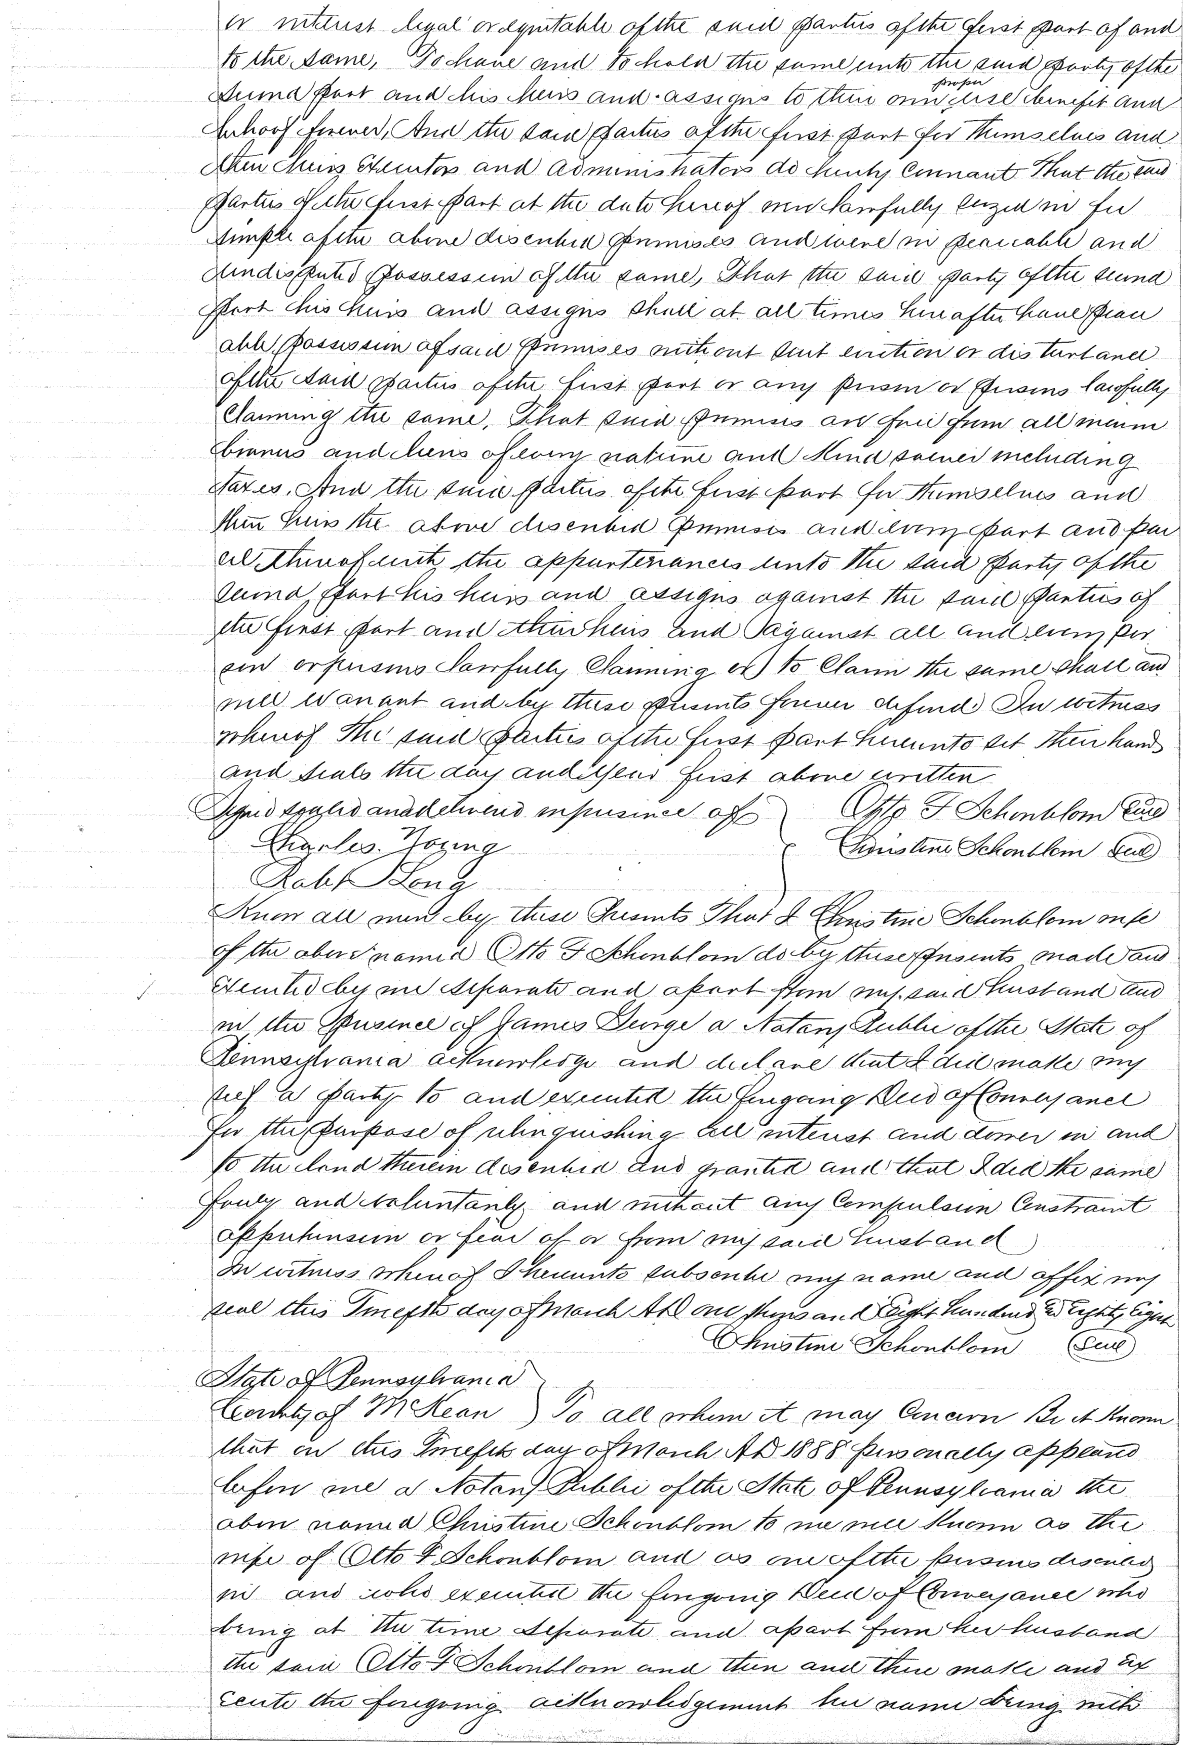 or interest legal or equitable of the said parties of the first part of and
to the same, To have and to hold the same unto the said party of the
proper
second part and his heirs and assigns to their own use benefit and
behoof forever, And the said parties of the first part for themselves and
their heirs Executors and administrators do hereby Covenant That the said
parties of the first part at the date hereof were lawfully seized in fee
simple of the above described premises and were in peaceable and
undisputed possession of the same, That the said party of the second
part his heirs and assigns shall at all times hereafter have peace
able possession of said premises without suit eviction or disturbance
of the said parties of the first part or any person or persons lawfully
Claiming the same, That said premises are free from all incum
brances and liens of every nature and Kind soever including
taxes. And the said parties of the first part for themselves and
their heirs the above described premises and every part and par
cel thereof with the appurtenances unto the said party of the
second part his heirs and assigns against the said parties of
the first part and their heirs and against all and every per
son or persons lawfully Claiming or to Claim the same shall and
will Warrant and by these presents forever defend In witness
whereof The said parties of the first part hereunto set their hands
and seals the day and year first above written
Signed sealed and delivered in presence of Otto F Schonblom Seal
Charles Young Christine Schonblom Seal
Robt Long
Know all men by these Presents That I Christine Schonblom wife
of the above named Otto F Schonblom do by these presents made and
Executed by me separate and apart from my said husband and
in the presence of James George a Notary Public of the State of
Pennsylvania acknowledge and declare that I did make my
self a party to and executed the foregoing Deed of Conveyance
for the purpose of relinquishing all interest and dower in and
to the land therein described and granted and that I did the same
freely and voluntarily and without any Compulsion Constraint
apprehension or fear of or from my said husband
In witness whereof I hereunto subscribe my name and affix my
seal this Twelfth day of March AD one thousand Eight hundred & Eighty Eight
Christine Schonblom Seal
State of Pennsylvania
County of McKean ) To all whom it may Concern Be it Known
that on this Twelfth day of March AD 1888 personally appeared
before me a Notary Public of the State of Pennsylvania the
above named Christine Schonblom to me well Known as the
wife of Otto F Schonblom and as one of the persons described
in and who executed the foregoing Deed of Conveyance who
being at the time separate and apart from her husband
the said Otto F Schonblom and then and there make and ex
ecute the foregoing acknowledgement her name being with